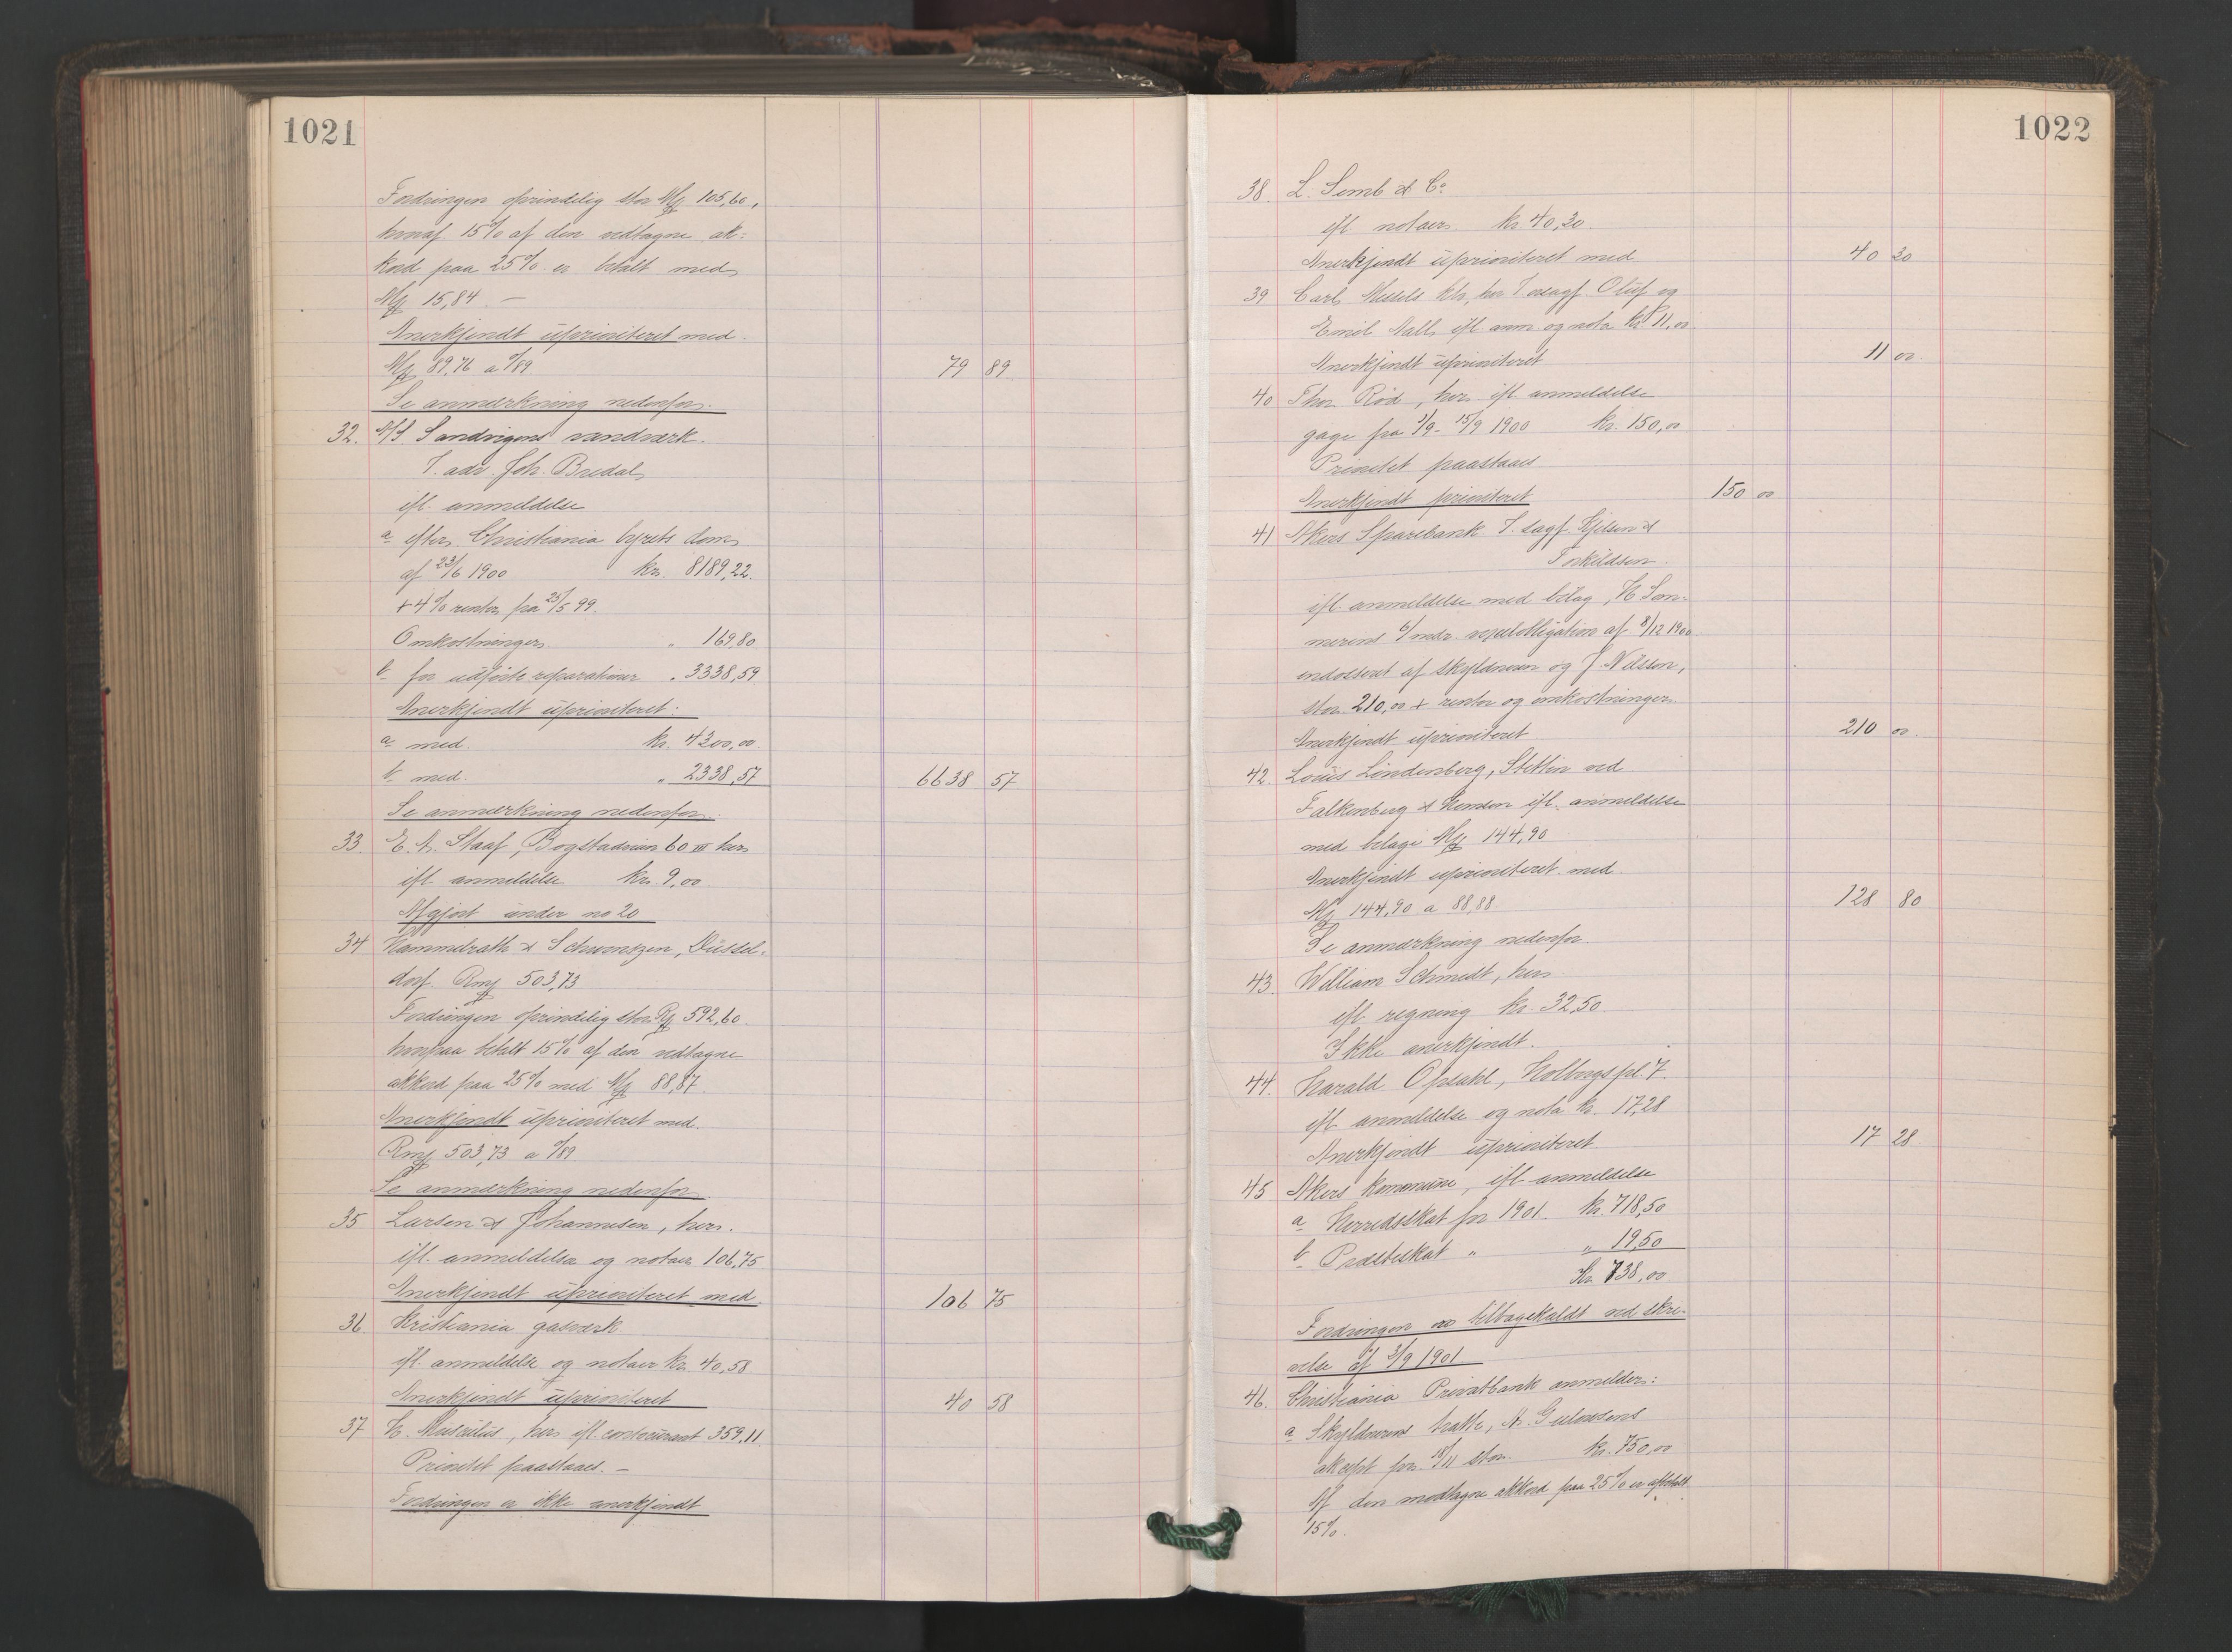 1021
Fordringen oprindelig stor Mk 105,60,
hvoraf 15% af den vedtagne ak=
kord paa 25% er betalt med
Mk 15,84. —
Anerkjendt uprioriteret med
Mk 89,76 a 0/89 79 89
Se anmærkning nedenfor.
32. A/S Sandvigens vandværk.
T. adv. Joh. Bredal,
ifl. anmeldelse
a efter Christiania byrets dom
af 23/6 1900 kr. 8189,22.
+ 4% renter fra 25/5 99.
Omkostninger " 169,80
b for udførte reparationer " 3338,59
Anerkjendt uprioriteret:
a med. kr. 4300,00.
b med. " 2338,57 6638 57
Se anmærkning nedenfor.
33. E. A. Staaf, Bogstadveien 60 III her
ifl. anmeldelse kr. 9,00
Afgjort under no 20
34 Hammelrath & Schwenzen, Düssel-
dorf. Rmk 503,73
Fordringen oprindelig stor Rmk 592,60.
hvorpaa betalt 15% af den vedtagne
akkord paa 25% med Mk 88,87.
Anerkjendt uprioriteret med.
Rmk 503,73 a 0/89
Se anmærkning nedenfor
35 Larsen & Johannesen, her.
ifl. anmeldelse og notaer 106,75
Anerkjendt uprioriteret med. 106 75
36. Kristiania gasværk
ifl. anmeldelse og notaer kr. 40,58
Anerkjendt uprioriteret 40 58
37 H. Musculus, her ifl. contocurant 359,11
Prioritet paastaaes. —
Fordringen er ikke anerkjendt
1022
38. L. Semb & Co
ifl notaer. kr 40,30.
Anerkjendt uprioriteret med 40 30
39 Carl Messels Eftr., her T. osagf. Oluf og
Emil Nalls ifl anm og nota kr 11,00
Anerkjendt uprioriteret 11 00.
40 Thor Rød, her ifl anmeldelse
gage fra 1/9 - 15/9 1900 kr. 150,00
Prioritet paastaaes
Anerkjendt prioriteret 150 00
41 Akers Sparebank T. sagf. Kjelsen &
Torkildsen.
ifl. anmeldelse med bilag, H Søn-
6/mdr. vexelobligation af 8/12 1900
endosseret af skyldneren og J. Nilsson,
stor 210,00 + renter og omkostninger.
Anerkjendt uprioriteret 210 00.
42. Louis Lindenberg, Stettin ved
Falkenberg & Hansen ifl. anmeldelse
med bilage Mk 144,90
Anerkjendt uprioriteret med
Mk 144,90 a 88,88. 128 80
Se anmærkning nedenfor.
43. William Schmidt, her
ifl. regning kr. 32,50
Ikke anerkjendt.
44. Harald Opsahl, Holbergs pl. 7.
ifl. anmeldelse og nota kr. 17,28
Anerkjendt uprioriteret 17 28.
45 Akers kommune, ifl. anmeldelse
a Herredsskat for 1901. kr. 718,50
b Præsteskat " " 19,50
Kr. 738,00
Fordringen er tilbagekaldt ved skri-
velse af 3/9 1901
46. Christiania Privatbank anmelder:
a Skyldnerens tratte, A. Gulowsens
aksept for 18/11 stor. kr. 750,00
Af den modtagne akkord paa 25% er afbetalt
15%.